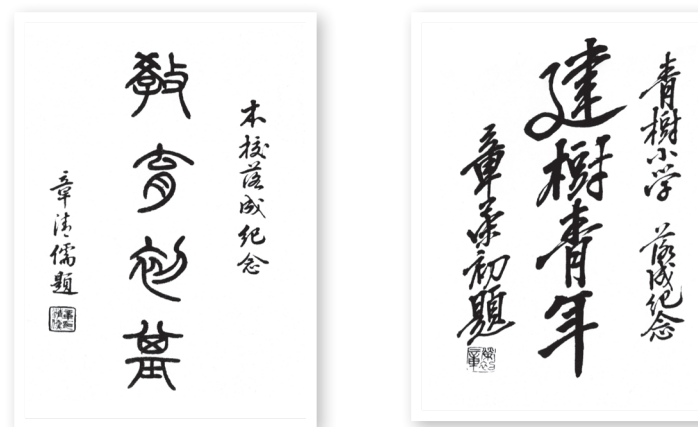 本校落成纪念
教育初基
章清儒題
青樹小学 落成纪念
建樹青年
章荣初題